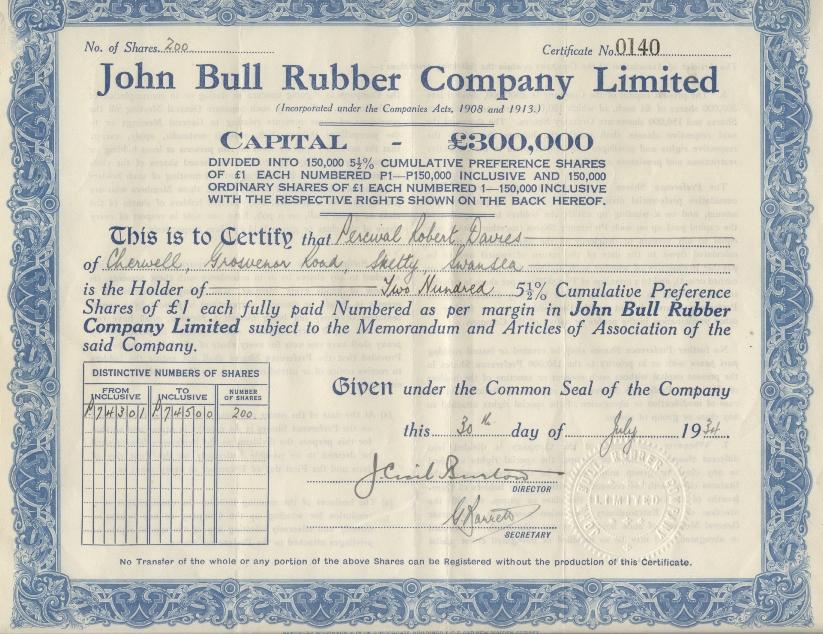 No. of Shares 200
Certificate No. 0140
John Bull Rubber Company Limited
(Incorporated under the Companies Acts, 1908 and 1913.)
CAPITAL - £300,000
DIVIDED INTO 150,000 5½% CUMULATIVE PREFERENCE SHARES
OF £1 EACH NUMBERED P1—P150,000 INCLUSIVE AND 150,000
ORDINARY SHARES OF £1 EACH NUMBERED 1—150,000 INCLUSIVE
WITH THE RESPECTIVE RIGHTS SHOWN ON THE BACK HEREOF.
This is to Certify that Percival Robert Davies
of Cherwell, Grosvenor Road, Sketty Swansea
is the Holder of Two Hundred 5½% Cumulative Preference
Shares of £1 each fully paid Numbered as per margin in John Bull Rubber
Company Limited subject to the Memorandum and Articles of Association of the
said Company.
DISTINCTIVE NUMBERS OF SHARES
FROM INCLUSIVE TO INCLUSIVE NUMBER OF SHARES
P74301 P74500 200
Given under the Common Seal of the Company
this 30th day of July 1934.
J Cecil Burton
DIRECTOR
SECRETARY
JOHN BULL RUBBER COMPANY
LIMITED
No Transfer of the whole or any portion of the above Shares can be Registered without the production of this Certificate.